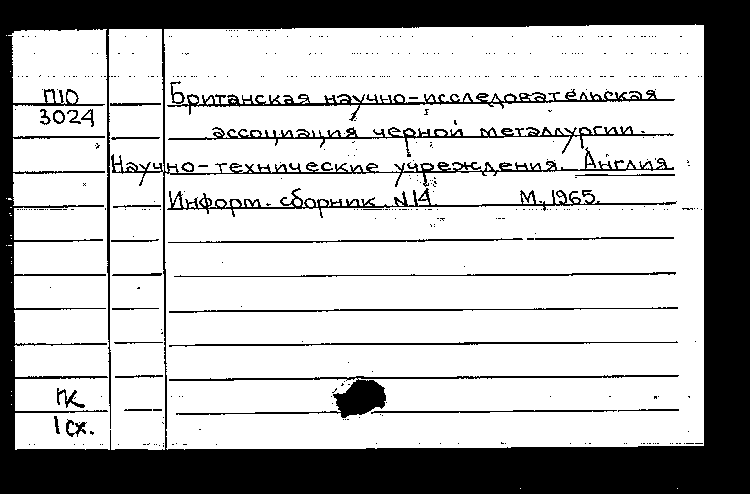 П10
3024
Британская научно-исследовательская
ассоциация черной металлургии.
Научно-технические учреждения. Англия
Информ. сборник. N14. М., 1965.
ПК
1 сх.